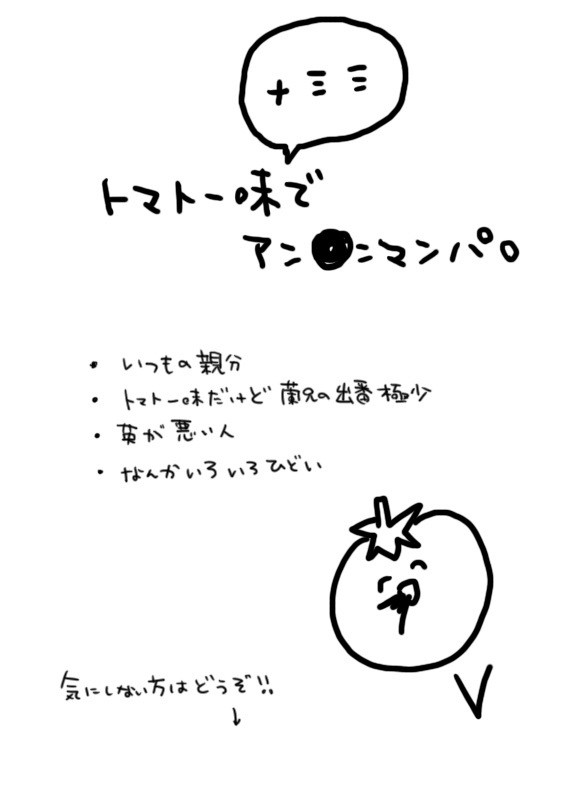 +ミミ
トマト一味で
アン●ンマンパロ
・いつもの親分
・トマト一味だけど蘭兄の出番極少
・英が悪い人
・なんかいろいろひどい
気にしない方はどうぞ!!
↓